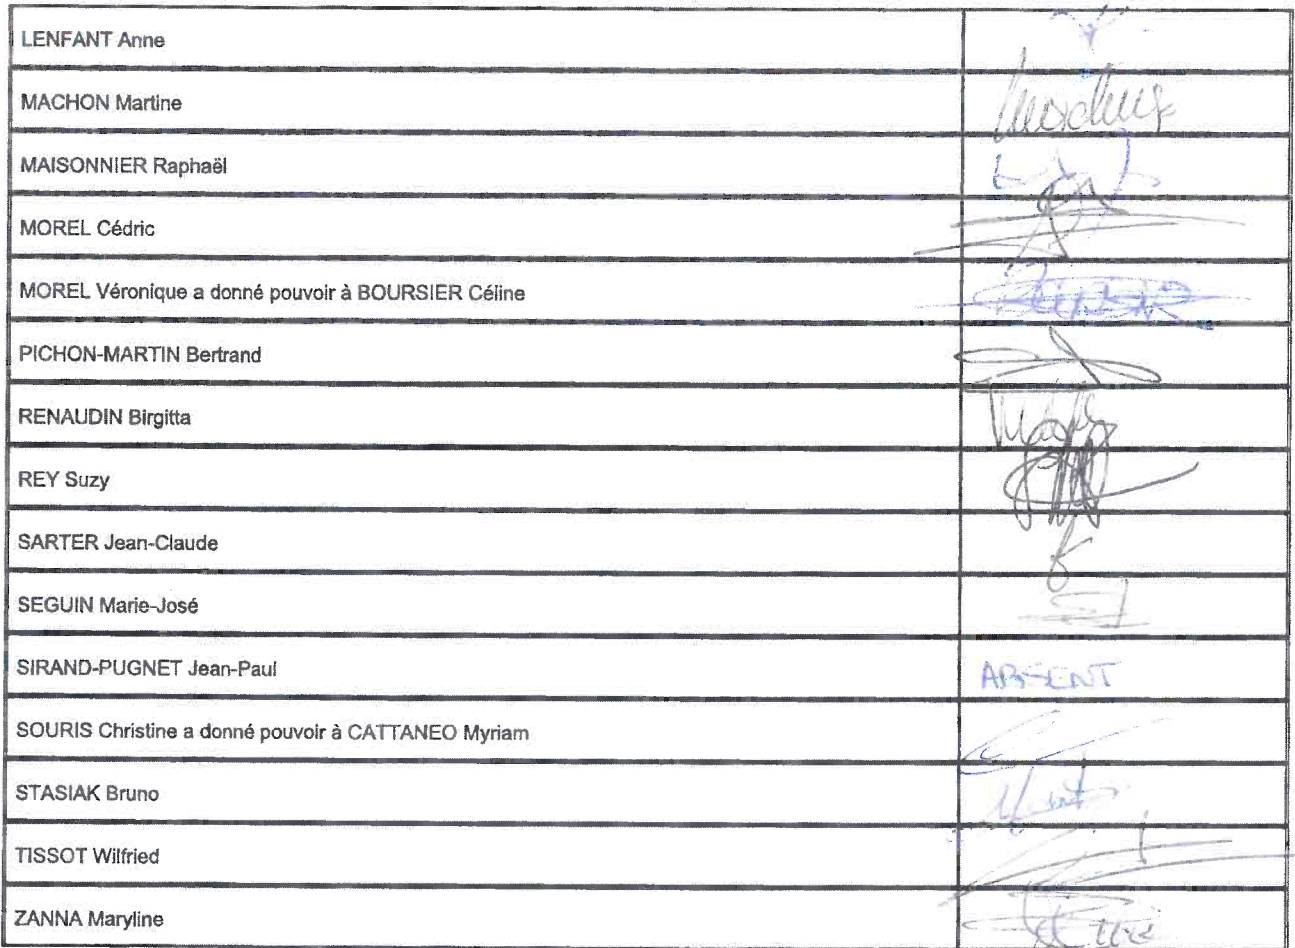 LENFANT Anne
MACHON Martine
MAISONNIER Raphaël
MOREL Cédric
MOREL Véronique a donné pouvoir à BOURSIER Céline
PICHON-MARTIN Bertrand
RENAUDIN Birgitta
REY Suzy
SARTER Jean-Claude
SEGUIN Marie-José
SIRAND-PUGNET Jean-Paul ABSENT
SOURIS Christine a donné pouvoir à CATTANEO Myriam
STASIAK Bruno
TISSOT Wilfried
ZANNA Maryline